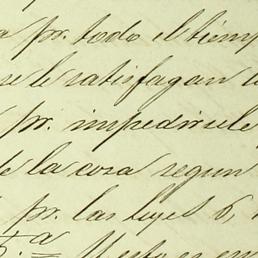 a pr. todo el tiemp
se le satisfagan l
pr. impedirsele
de la cosa segun
pr. las leyes 6,
5.ª = Y esto es en